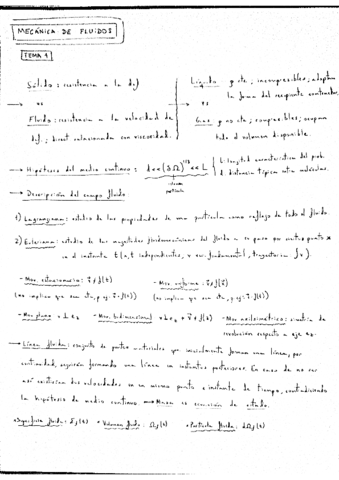 MECÁNICA DE FLUIDOS
TEMA 1
Sólido: resistencia a la def
vs
Fluido: resistencia a la velocidad de
def.; direct. relacionada con viscosidad.
Líquido: ρ cte, incompresibles; adoptan
la forma del recipiente contenedor.
vs
Gas: ρ no cte, compresibles, ocupan
todo el volumen disponible.
→ Hipótesis del medio continuo: d << (δΩ)^1/3 << L
L: longitud característica del prob.
d: distancia típica entre moléculas.
→ Descripción del campo fluido:
1) Lagrangiana: estudio de las propiedades de una partícula como reflejo de todo el fluido.
2) Euleriana: estudio de las magnitudes fluidomecánicas del fluido a su paso por ciertos puntos x
en el instante t (x, t independientes, v es fundamental, trayectoria ∫v).
- Mov. estacionario: v ≠ f(t)
(no implica que sea cte, p.ej: v = f(x))
- Mov. uniforme: v ≠ f(x)
(no implica que sea cte, p.ej: v = f(t))
- Mov. plano: v ⊥ e_z
- Mov. bidimensional: v ⊥ e_z y v ≠ f(z)
- Mov. axilsimétrico: simetría de
revolución respecto a eje e_z.
→ Línea fluida: conjunto de puntos materiales que inicialmente forman una línea, por
continuidad, seguirán formando una línea en instantes posteriores. En caso de no ser
así existirían dos velocidades en un mismo punto e instante de tiempo, contradiciendo
la hipótesis de medio continuo → Nunca es ecuación de estado.
• Superficie fluida: Σf(t) • Volumen fluido: Ωf(t) • Partícula fluida: dΩf(t)